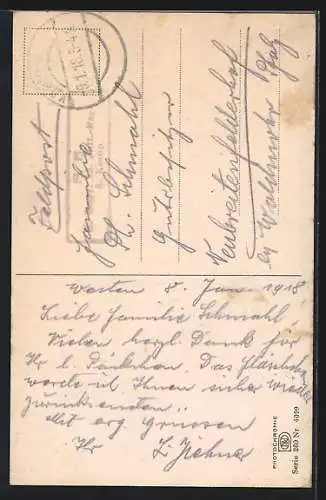 Feldpost
Familie
Ph. Schmahl
Gutsbesitzer
Neubreitenfelderhof
bei Waldmohr Pfalz
Westen 8. Januar 1918
Liebe Familie Schmahl
Vielen herzl Dank für
Ihr l. Päckchen. Das
werde ich Ihnen sicher wieder
zurücksenden.
Mit erg. Grüssen
Ihr
PHOTOCHROMIE
Serie 260 Nr 4099